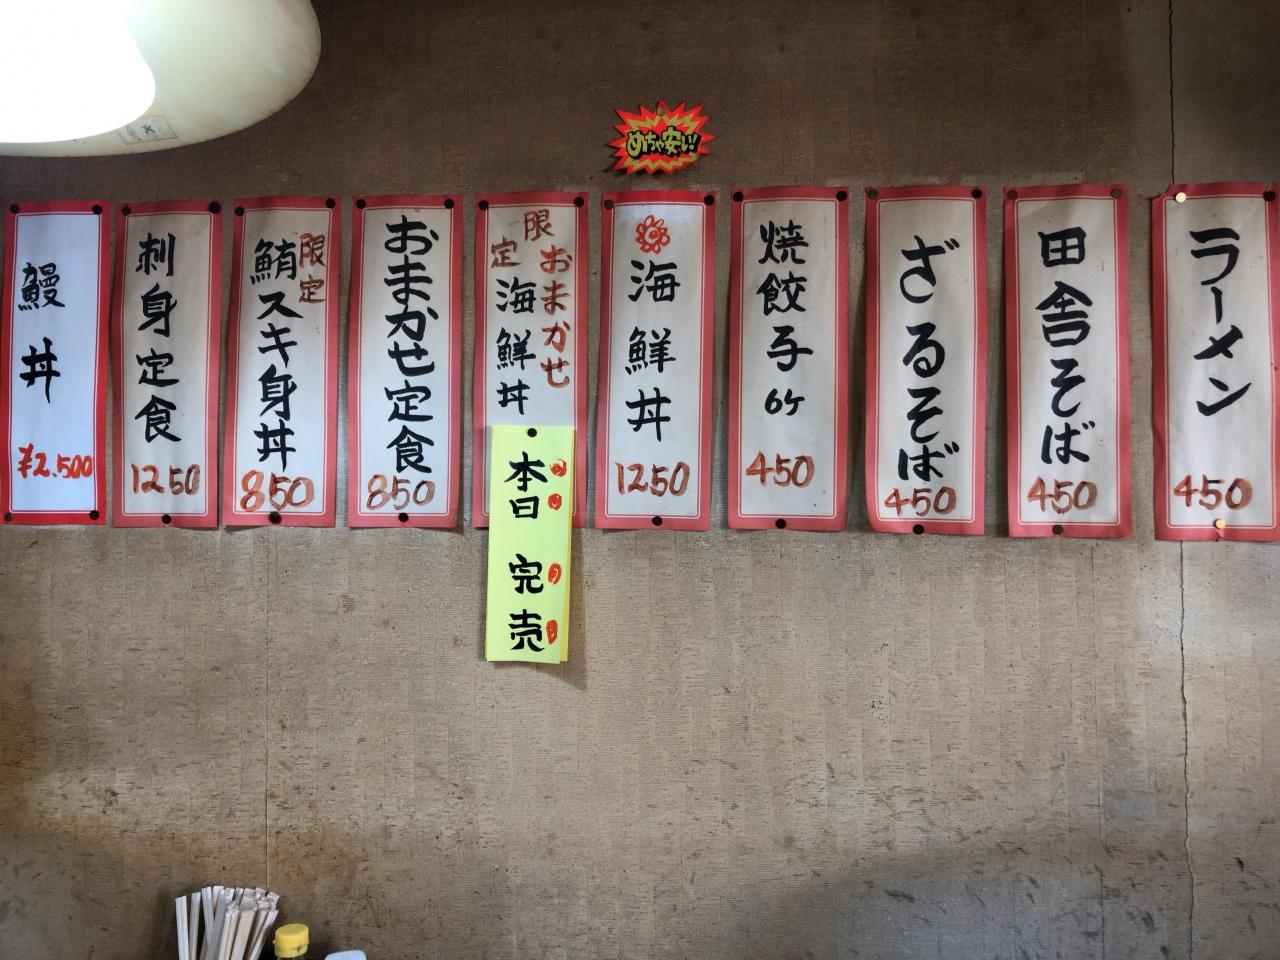 めちゃ安い!
ラーメン
450
田舎そば
450
ざるそば
450
焼餃子6ケ
450
海鮮丼
1250
限定
おまかせ
海鮮丼
本日完売
おまかせ定食
850
限定
鮪スキ身丼
850
刺身定食
1250
鰻丼
¥2.500